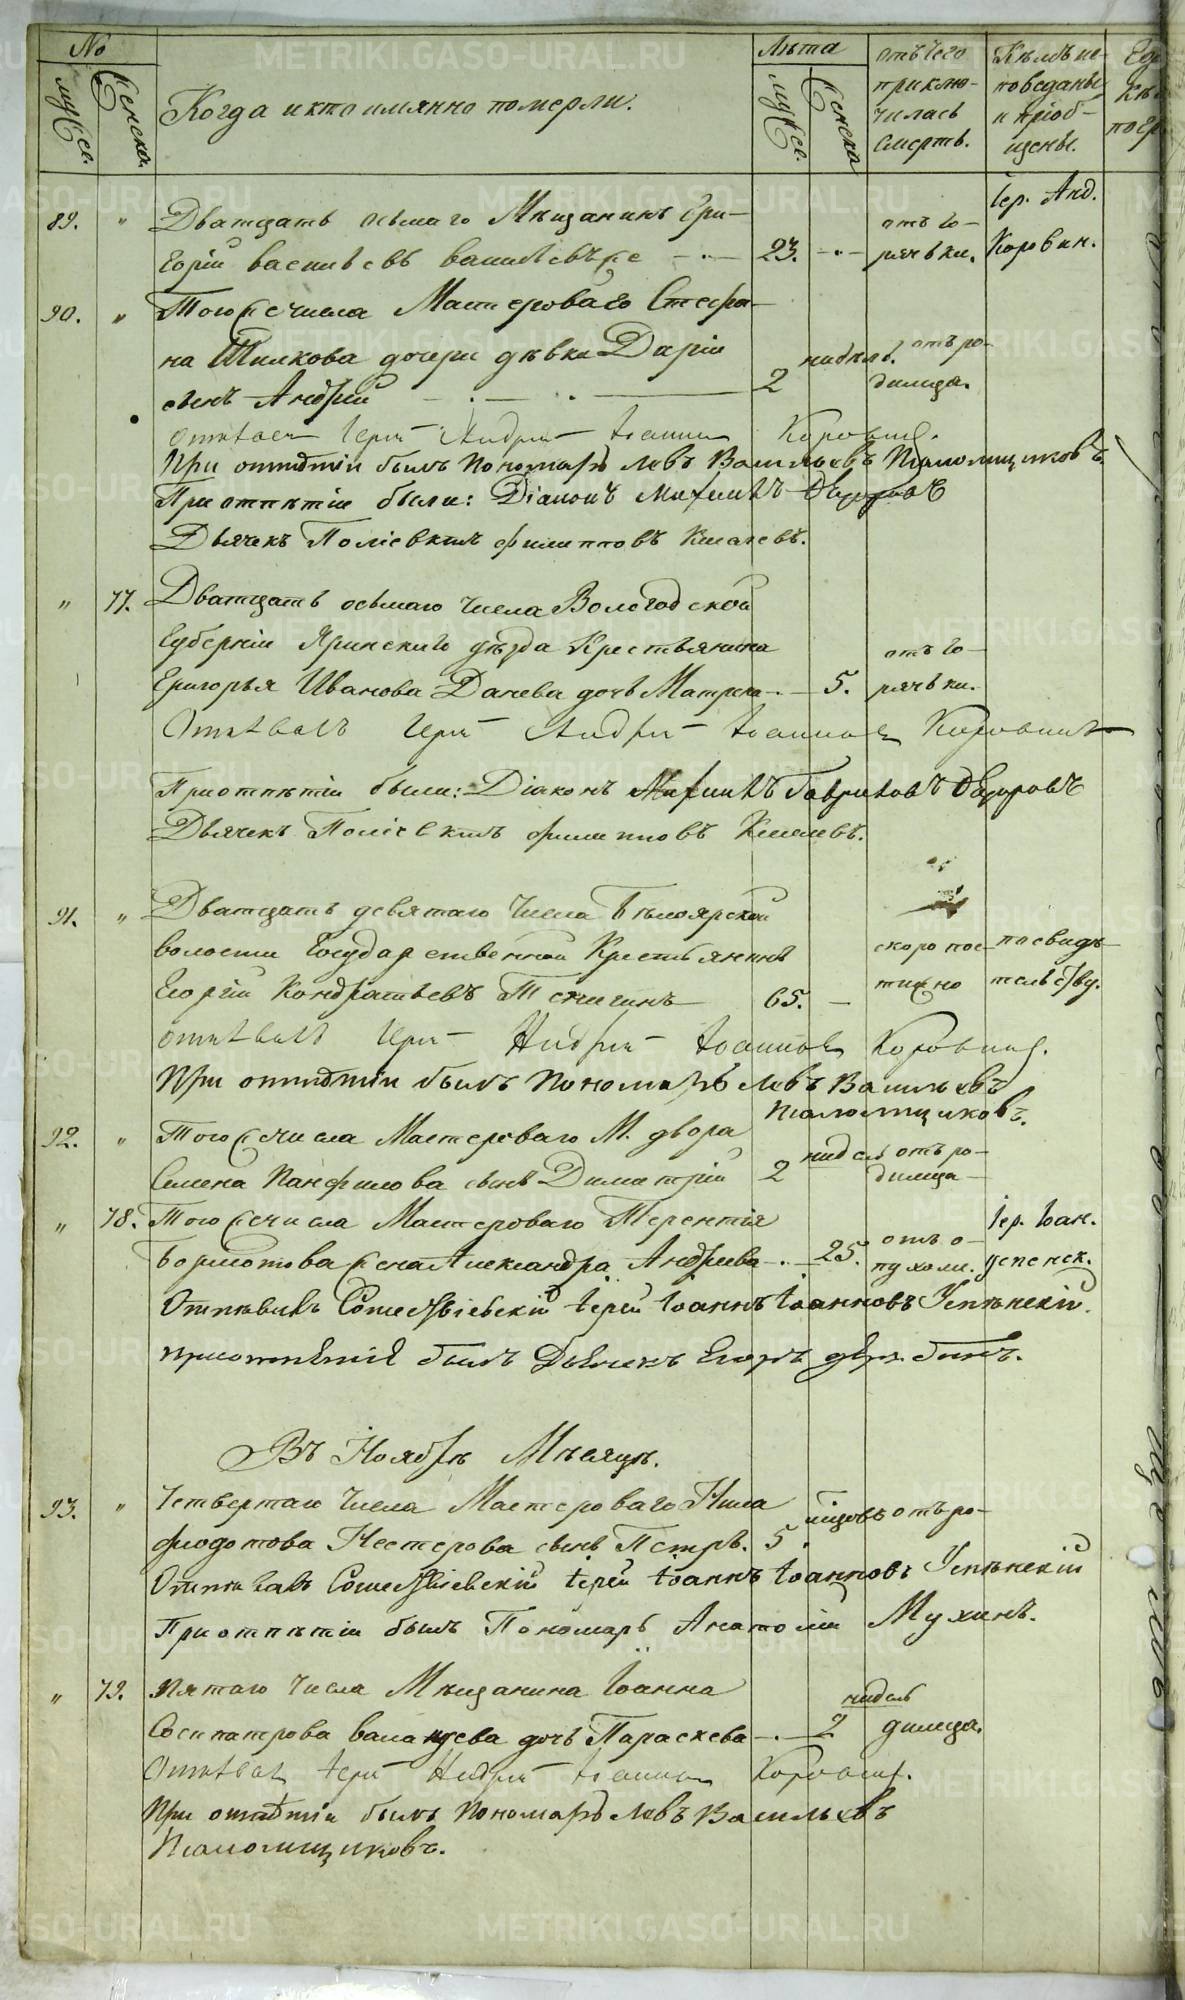 №
Лѣта
отъ чего приклю-
чилась смерть.
Кѣмъ ис-
поведаны
и пріоб-
щены.
мужес.
женска.
Когда и кто имянно померли.
мужес.
женска
89. " Дватцать осьмаго Мѣщанинъ Гри-
горій Васильевъ 23. отъ го-
рячьки. Іер. Анд.
Коровин.
90. " Того же числа Мастероваго Стефа-
на Шилкова дочери дѣвки Даріи
сынъ Андрей 2 нидѣль. отъ ро-
димца.
Отпѣвал Іерей Андрей Іоаннов Коровин.
При отпѣтіи былъ Пономарь Левъ Васильевъ Псаломщиковъ.
При отпѣтіи были: Діаконъ
Дьячекъ Филипповъ Киселевъ.
" 77. Дватцать осьмаго числа Вологодской
Губерніи Яринскиго уѣзда Крестьянина
Григорья Иванова Данева дочь Матрена 5. отъ го-
рячьки.
Отпѣвалъ Іерей Андрей Іоаннов Коровинъ
При отпѣтіи были: Діаконъ Гавриловъ Ѳедоровъ
Дьячекъ Филипповъ Киселевъ.
91. " Дватцать девятаго числа Бѣлоярской
волости Государственной Крестьянинъ
Егоръй Кондратьевъ 65. скоропос-
тижно по свидѣ-
тельству.
отпѣвалъ Іерей Андрей Іоаннов Коровин.
При отпѣтіи былъ Пономарь Левъ Васильевъ
Псаломщиковъ.
92. " Того же числа Мастероваго М. двора
Семена Панфилова сынъ Димитрій 2 нидель отъ ро-
димца
" 78. Того же числа Мастероваго Терентія
Бормотова жена Александра Андреева 25. отъ о-
пухоли. Іер. Іоан.
Успенск.
Отпѣвалъ Сошествіевскій Іерей Іоаннъ Іоанновъ Успѣнскій.
При отпѣтіе былъ Дьячекъ Егоръ
Въ Ноябрѣ Мѣсяцѣ.
93. " Четвертаго числа Мастероваго Нила
Федотова Нестерова сынъ Петръ. 5. мѣсецовъ отъ ро-
Отпѣвалъ Сошествіевскій Іерей Іоаннъ Іоанновъ Успѣнскій
При отпѣтіи былъ Пономарь Анатолій Мухинъ.
" 79. Пятаго числа Мѣщанина Іоанна
Сосипатрова дочь Параскева 2 нидель
димца.
Отпѣвал Іерей Андрей Іоаннов Коровин.
При отпѣтіи былъ Пономарь Левъ Васильевъ
Псаломщиковъ.
METRIKI.GASO-URAL.RU